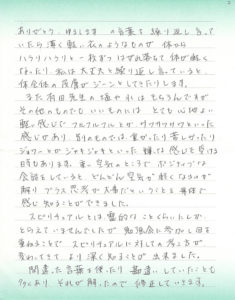 ありがとう、ゆるします の言葉を繰り返し言って
いたら薄く軽い衣のようなものが 体から
ハラリハラリと一枚ずつはがれ落ちて体が軽く
なったり、私は大丈夫と繰り返し言っていると、
体全体の皮膚がジーンとしてきたりします。
また有田先生の塩や水はもちろんですが
その他のものでも いいものは とても心地よい
軽い感じで フルフルワーとか サワサワワ といった
感じがあり 別のものでは 重かったり苦しかったり
ジョワーとか ジャキジャキといった 嫌な感じを受ける
時もあります。重い空気のところで ポジティブな
会話をしていると、どんどん空気が軽くなるのが
解り プラス思考が大事だということを身体で
感じ知ることができました。
スピリチュアルとは霊的なことくらいにしか
とらえていませんでしたが 勉強会に参加し回を
重ねるごとで スピリチュアルに対しての考え方が
変わってきて より深く知ることが出来ました。
間違った言葉を使ったり 勘違いしていたことも
多々あり、それが解ったので 修正していきます。